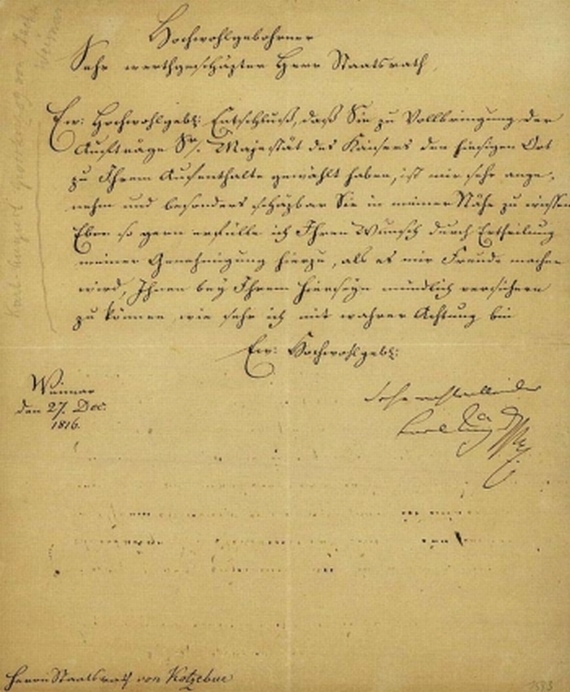 Hochwohlgebohrner
Sehr werthgeschäzter Herr Staatsrath,
Ew: Hochwohlgeb: Entschluß, daß Sie zu Vollbringung der
Aufträge Sr. Majestät des Kaisers den hiesigen Ort
zu Ihrem Aufenthalte gewählt haben, ist mir sehr ange„
nehm und besonders schäzbar Sie in meiner Nähe zu wissen
Eben so gern erfülle ich Ihren Wunsch durch Ertheilung
meiner Genehmigung hierzu, als es mir Freude machen
wird, Ihnen bey Ihrem Hierseyn mündlich versichern
zu können wie sehr ich mit wahrer Achtung bin
Ew: Hochwohlgeb:
Weimar
den 27. Dec.
1816.
Carl August
Herrn Staatsrath von Kotzebue